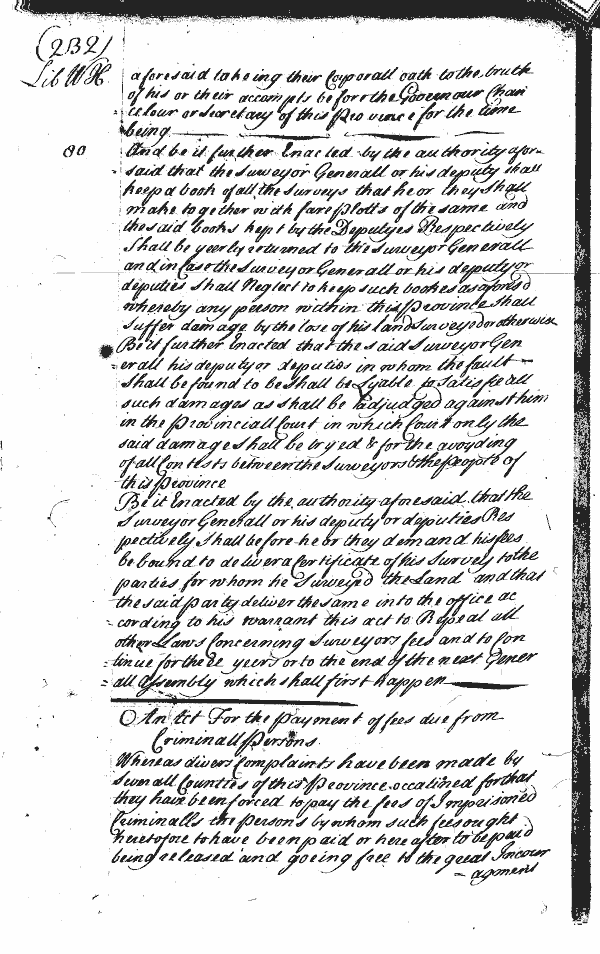 (232)
Lib W H
aforesaid takeing their Corporall oath to the truth
of his or their accompts before the Governour Chan
celour or Secretary of this Province for the time
being
80
And be it further Enacted by the authority afore
said that the Surveyor Generall or his deputy shall
keep a book of all the Surveys that he or they Shall
make together with fare Plotts of the same and
the said books kept by the Deputyes Respectively
Shall be yeerly returned to the Surveyor Generall
and in Case the Surveyor Generall or his deputy or
deputies Shall Neglect to keep such bookes as aforesd
whereby any person within this Province Shall
Suffer damage by the lose of his land Surveyed or otherwise
Be it further Enacted that the said Surveyor Gen
erall his deputy or deputies in whom the fault
Shall be found to be Shall be Lyable to Satisfie all
such damages as shall be adjudged against him
in the Provinciall Court in which Court only the
said damage Shall be tryed & for the avoyding
of all Contests between the Surveyors & the people of
this Province
Be it Enacted by the authority aforesaid that the
Surveyor Generall or his deputy or deputies Res
pectively Shall before he or they demand his fees
be bound to deliver a Certificate of his Survey to the
parties for whom he Surveyed the Land and that
the said party deliver the same into the office ac
cording to his warrant this act to Repeal all
other Laws Concerning Surveyors fees and to Con
tinue for three yeers or to the end of the next Gener
all Assembly which shall first happen
An Act For the payment of fees due from
Criminall Persons
Whereas divers Complaints have been made by
Severall Counties of this Province occationed for that
they have been forced to pay the fees of Imprisoned
Criminalls the Persons by whom such fees ought
heretofore to have been paid or hereafter to be paid
being released and goeing free to the great Incour
agment